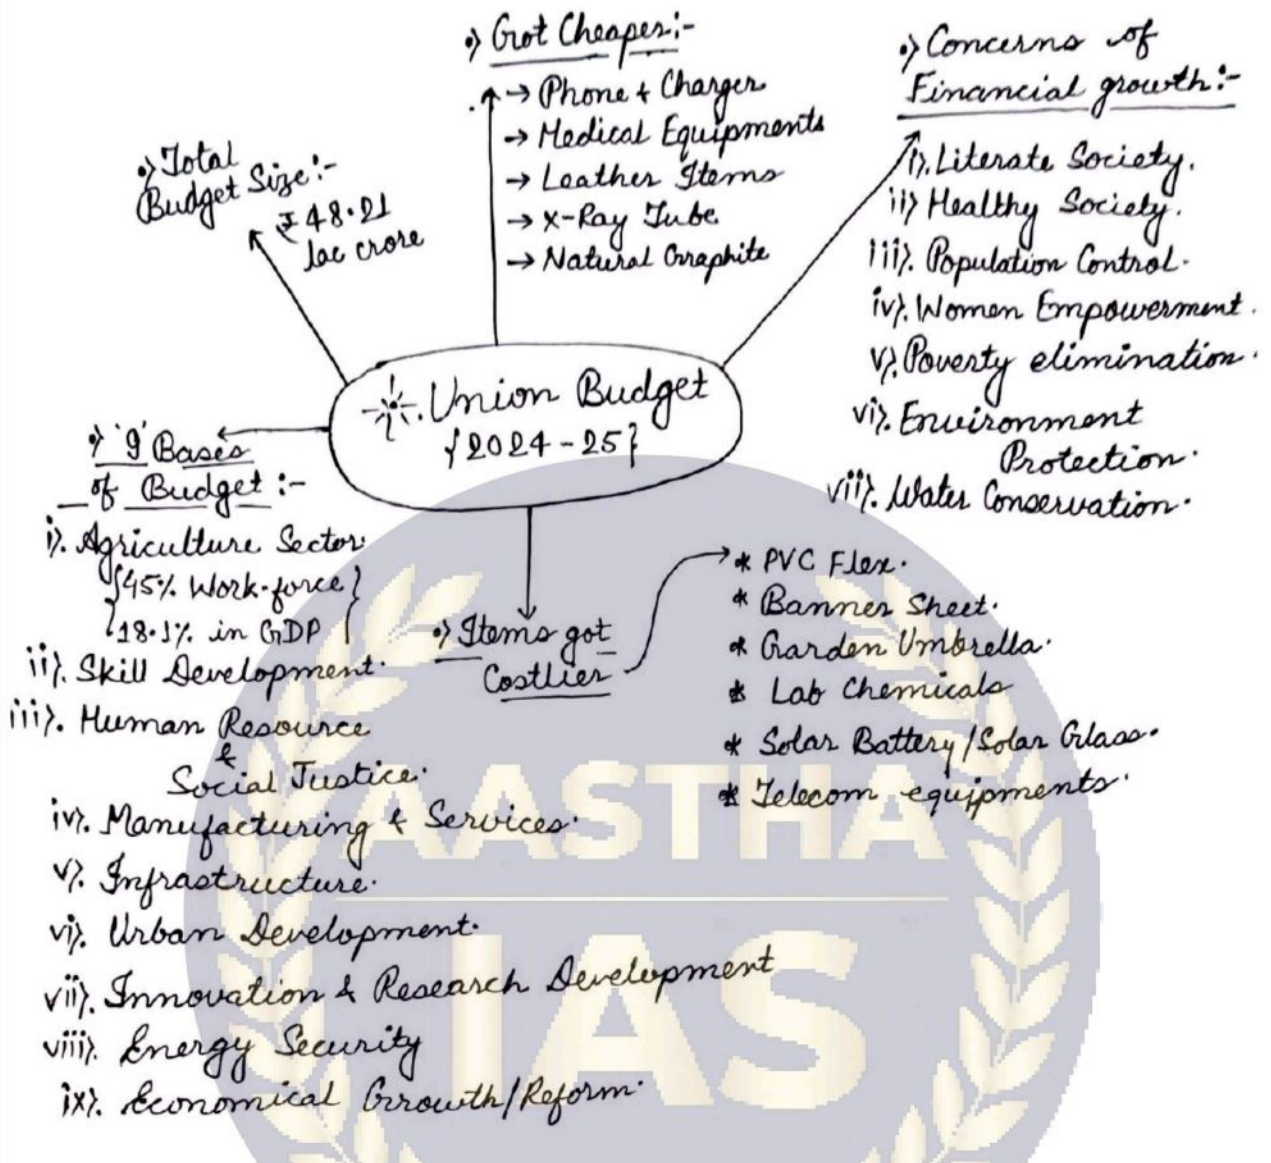 •) Got Cheaper:-
→ Phone + Charger
→ Medical Equipments
→ Leather Items
→ X-Ray Tube
→ Natural Graphite
•) Concerns of
Financial growth:-
i). Literate Society.
ii) Healthy Society.
iii). Population Control.
iv). Women Empowerment.
v). Poverty elimination.
vi). Environment
Protection.
vii). Water Conservation.
•) Total
Budget Size:-
₹ 48.21
lac crore
Union Budget
{2024-25}
•) '9' Bases
of Budget :-
i). Agriculture Sector.
{45% Work-force}
{18.1% in GDP}
ii). Skill Development.
iii). Human Resource
&
Social Justice.
iv). Manufacturing & Services.
v). Infrastructure.
vi). Urban Development.
vii). Innovation & Research Development
viii). Energy Security
ix). Economical Growth/Reform.
•) Items got
Costlier
* PVC Flex.
* Banner Sheet.
* Garden Umbrella.
* Lab Chemicals
* Solar Battery/Solar Glass.
* Telecom equipments.
AASTHA
IAS